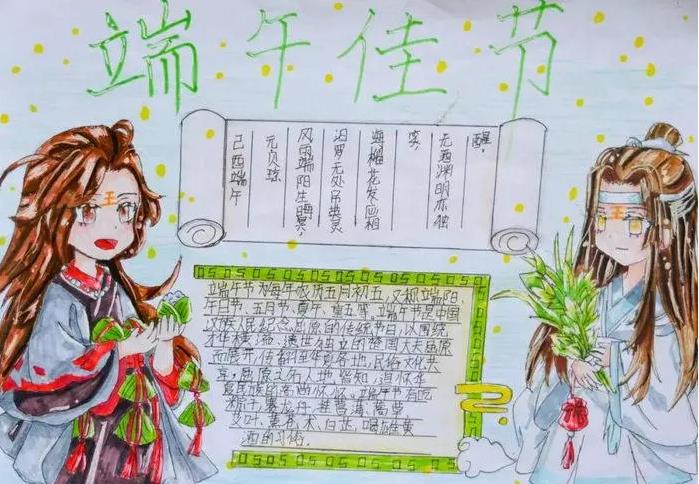 端午佳节
己酉端午
元贝琼
风雨端阳生晦冥,
汨罗无处吊英灵
海榴花发应相
笑,
无酒渊明亦独
醒。
端午节为每年农历五月初五,又称端阳、
午日节、五月节、夏午、重五等。端午节是中国
汉族人民纪念屈原的传统节日,以围绕
才华横溢、遗世独立的楚国大夫屈原
而展开,传播至华夏各地,民俗文化共
享,屈原之名人地皆知,追怀华
夏民族的高尚情怀。端午节有吃
粽子,赛龙舟,挂菖蒲、蒿草
艾叶,薰苍术、白芷,喝雄黄
酒的习俗。
王
王